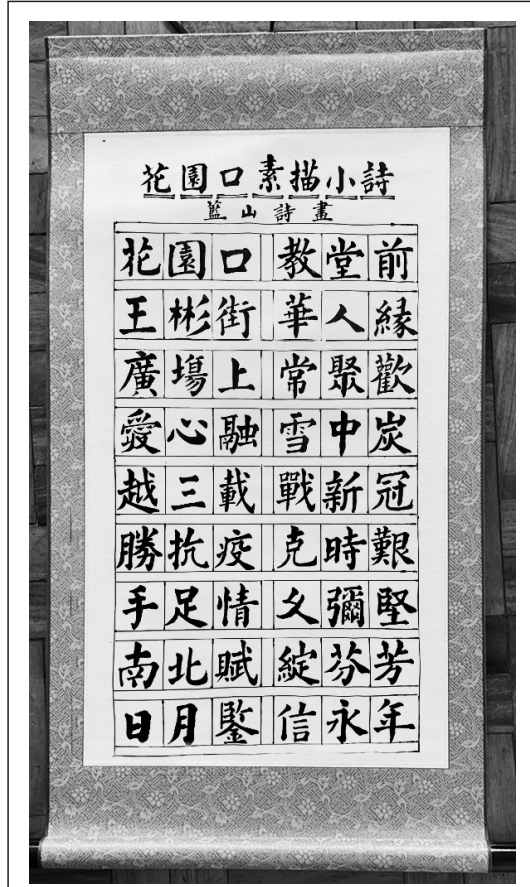 花園口素描小詩
藍山詩畫
花園口教堂前
王彬街華人緣
廣場上常聚歡
愛心融雪中炭
越三載戰新冠
勝抗疫克時艱
手足情久彌堅
南北賦綻芬芳
日月鑒信永年